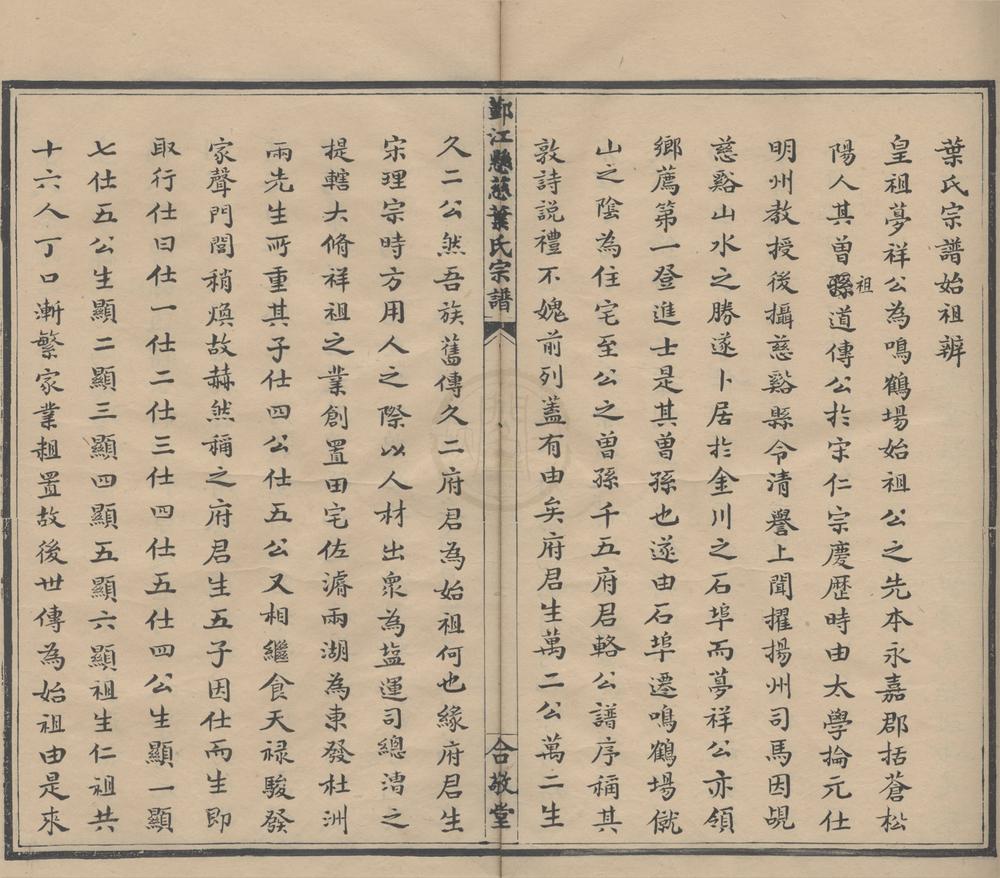 葉氏宗譜始祖辨
皇祖夢祥公為鳴鶴場始祖公之先本永嘉郡括蒼松
陽人其曾孫祖道傳公於宋仁宗慶歷時由太學掄元仕
明州教授後攝慈谿縣令清譽上聞擢揚州司馬因覘
慈谿山水之勝遂卜居於金川之石埠而夢祥公亦領
鄉薦第一登進士是其曾孫也遂由石埠遷鳴鶴場僦
山之陰為住宅至公之曾孫千五府君輅公譜序稱其
敦詩說禮不媿前列蓋有由矣府君生萬二公萬二生
鄞江縣慈葉氏宗譜
合敬堂
久二公然吾族舊傳久二府君為始祖何也緣府君生
宋理宗時方用人之際以人材出眾為塩運司總漕之
提轄大脩祥祖之業創置田宅佐濬兩湖為東發杜洲
兩先生所重其子仕四公仕五公又相繼食天祿駿發
家聲門閭稍煥故赫然稱之府君生五子因仕而生即
取行仕曰仕一仕二仕三仕四仕五仕四公生顯一顯
七仕五公生顯二顯三顯四顯五顯六顯祖生仁祖共
十六人丁口漸繁家業粗置故後世傳為始祖由是來